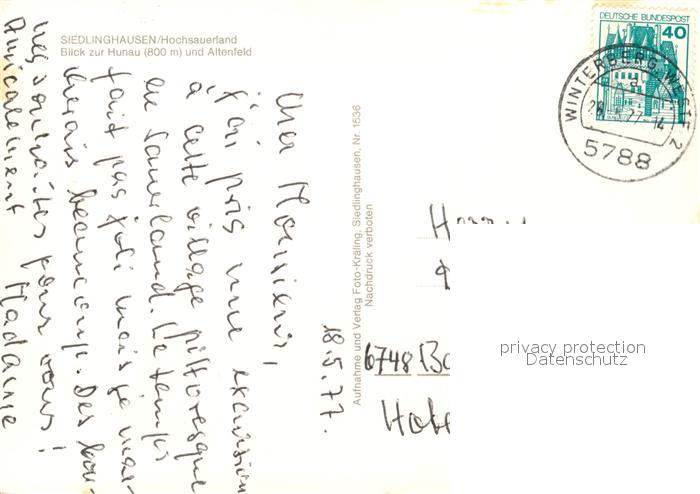 SIEDLINGHAUSEN/Hochsauerland
Blick zur Hunau (800 m) und Altenfeld
18.5.77.
Cher Monsieur,
j'ai pris une excursion
à cette village pittoresque
en Sauerland. Le temps
fait pas joli mais je
beaucoup. Des
souhaites pour vous!
Amicalement Madame
Aufnahme und Verlag Foto-Kräling, Siedlinghausen, Nr. 1536
Nachdruck verboten
DEUTSCHE BUNDESPOST
40
WINTERBERG, WESTF 2
5788
6748
privacy protection
Datenschutz